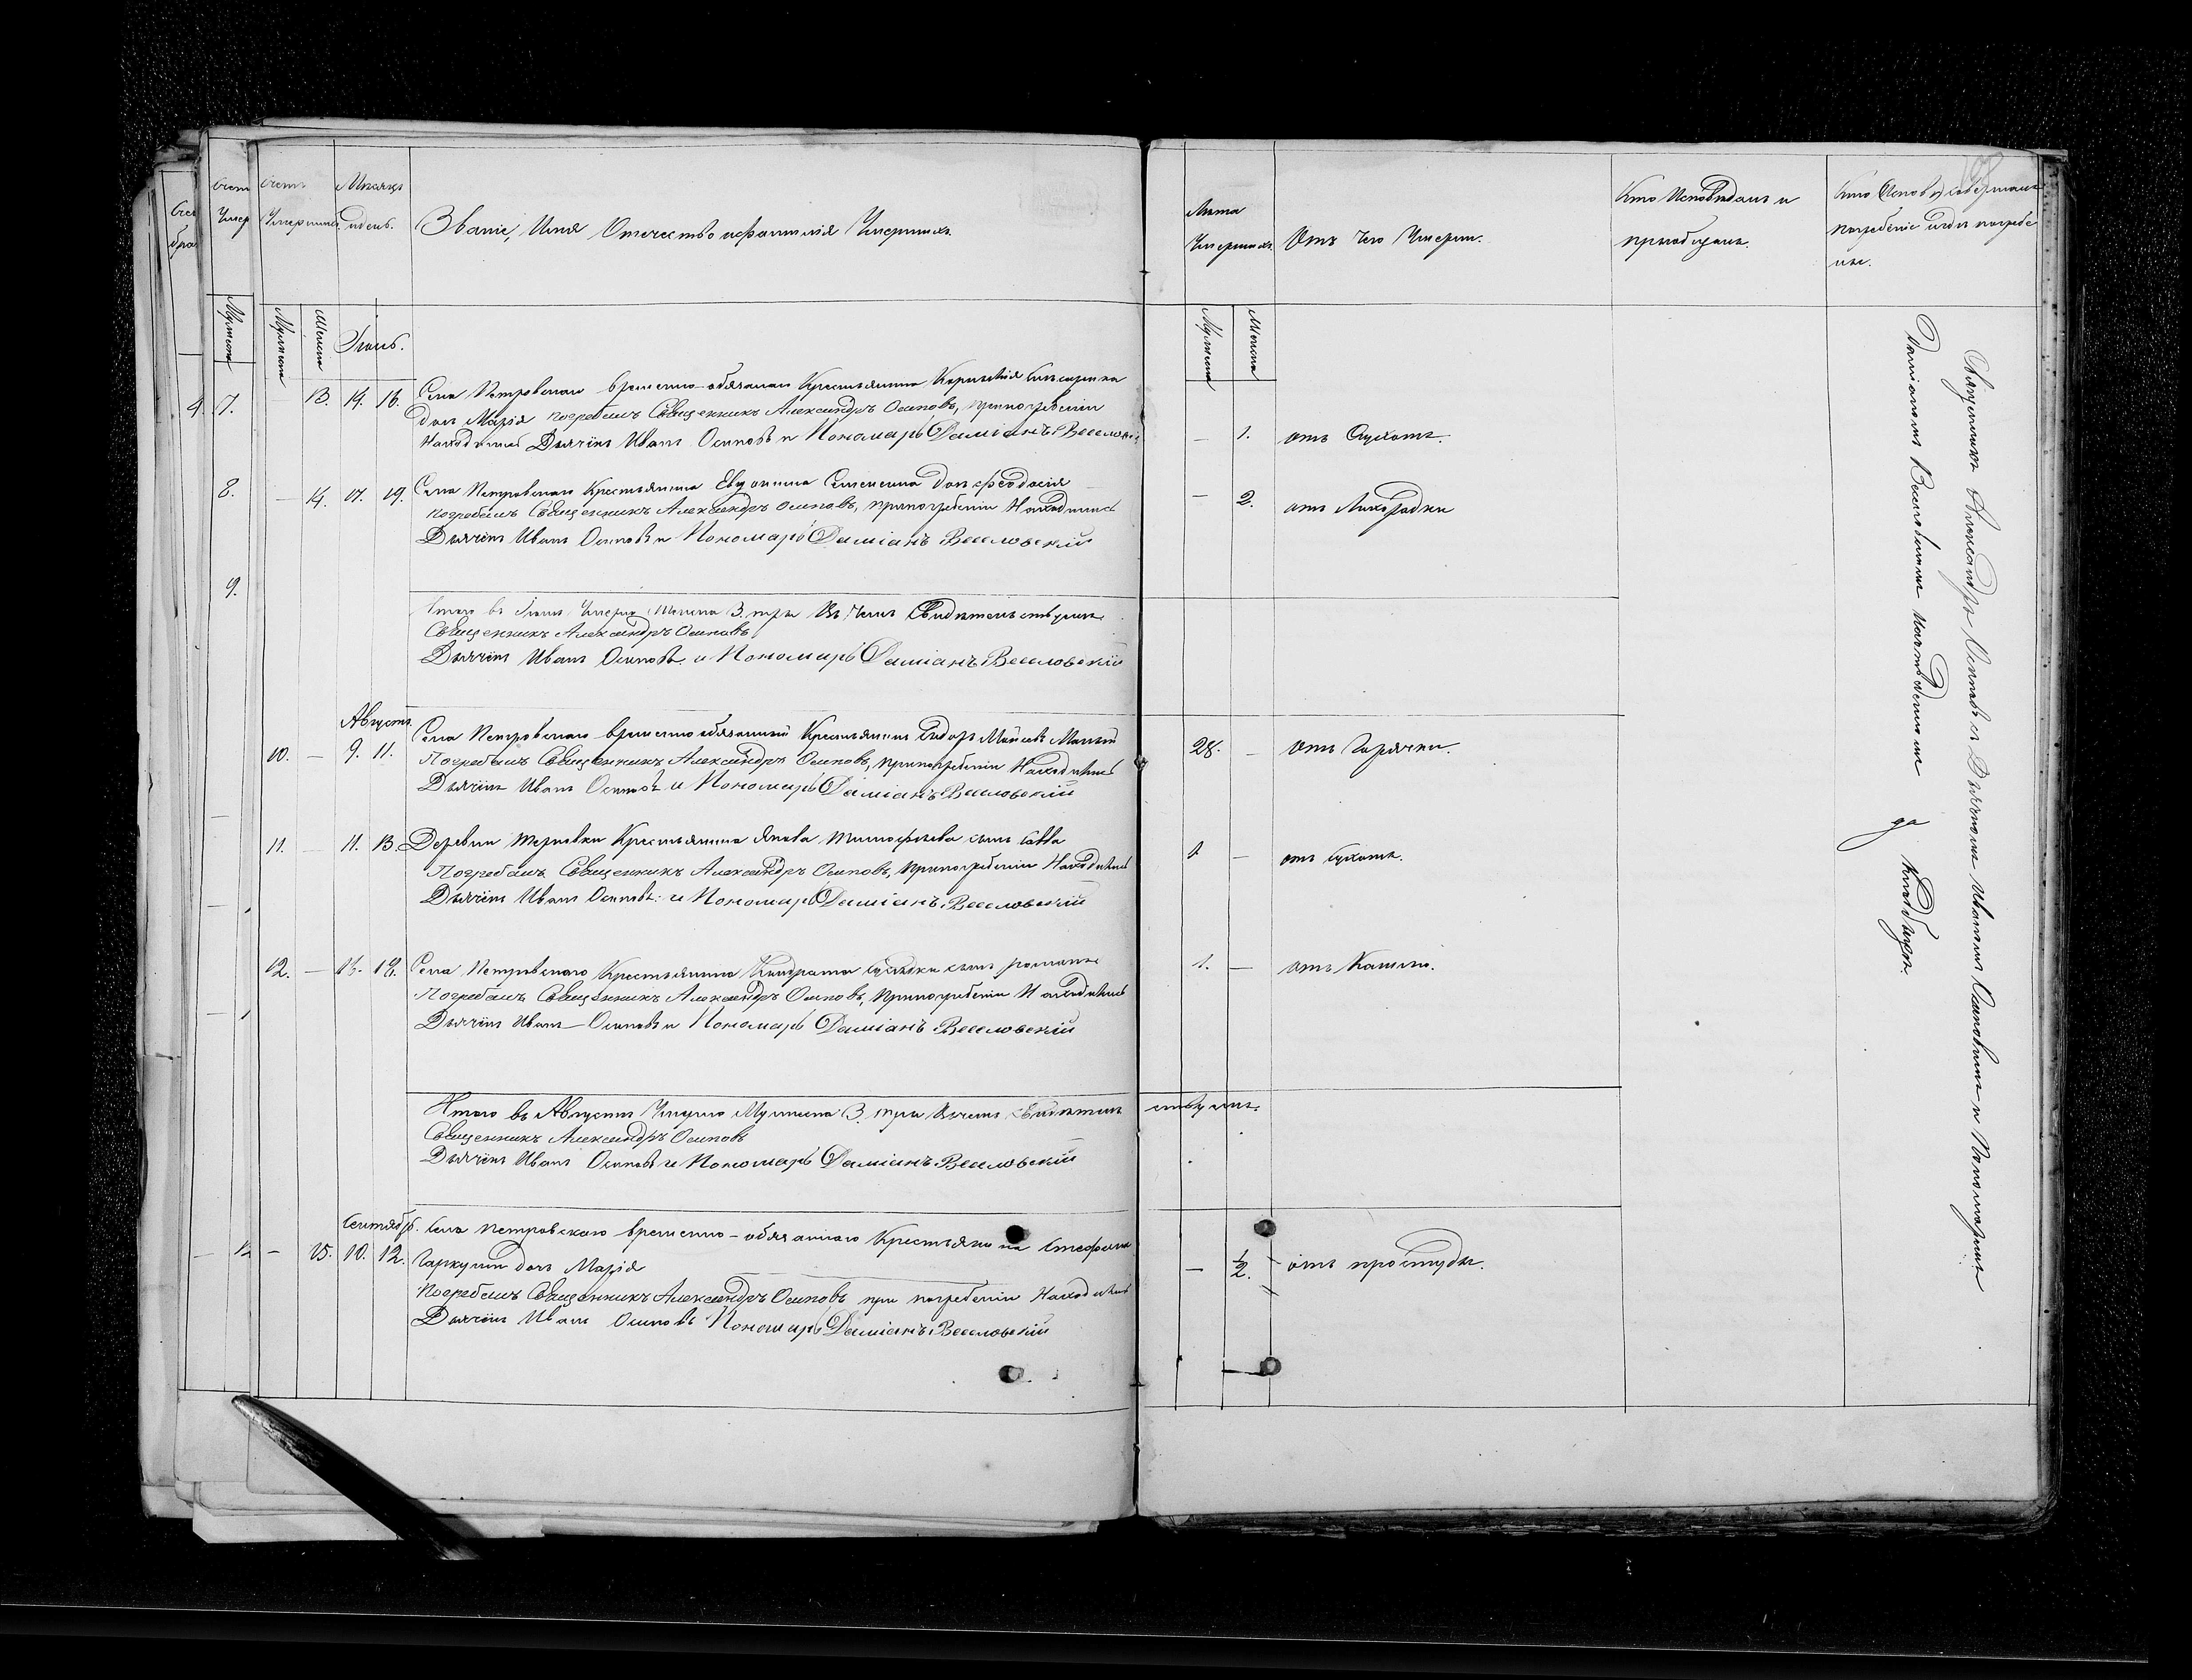 Счетъ
Умершихъ
Мѣсяцъ
и день.
Званіе, Имя Отечество и фамилія Умершихъ.
Лѣта
Умершихъ.
Отъ чего Умерли.
Кто Исповѣдалъ и
пріобщалъ.
погребеніе и гдѣ погребе
ны.
Мужеска
Женска
Іюль.
Мужеска
Женска
7.
13. 14. 16. Села Петровскаго временно-обязаннаго Крестьянина
дочь Марія погребалъ Священникъ Александръ Осиповъ, при погребеніи
Находились Дьячёкъ Иванъ Осиповъ и Пономарь Даміанъ Веселовскій
— 1. отъ Сухотъ.
8.
— 14. 17. 19. Села Петровскаго Крестьянина Семенина дочь феодосія
погребалъ Священникъ Александръ Осиповъ, при погребеніи Находились
Дьячёкъ Иванъ Осиповъ и Пономарь Даміанъ Веселовскій
— 2. отъ Лихорадки
9.
Итого въ Іюлѣ Умерло Женска 3. три Въ чемъ Свидѣтельствуемъ
Священникъ Александръ Осиповъ
Дьячёкъ Иванъ Осиповъ и Пономарь Даміанъ Веселовскій
Августъ.
10. — 9. 11. Села Петровскаго временно обязанный Крестьянинъ Сидоръ
Погребалъ Священникъ Александръ Осиповъ, при погребеніи Находились
Дьячёкъ Иванъ Осиповъ и Пономарь Даміанъ Веселовскій
28. — Отъ Горячки.
11. — 11. 13. Деревни Терновки Крестьянина Якова Тимофѣева сынъ Савва
Погребалъ Священникъ Александръ Осиповъ, При погребеніи Находились
Дьячёкъ Иванъ Осиповъ и Пономарь Даміанъ Веселовскій
1 — отъ сухотъ.
12. — 16. 18. Села Петровскаго Крестьянина Кондрата сынъ романъ
Погребалъ Священникъ Александръ Осиповъ, При погребеніи Находились
Дьячёкъ Иванъ Осиповъ и Пономарь Даміанъ Веселовскій
1. — отъ Кашлю.
Итого въ Августѣ Умерло Мужеска 3. три Въ чемъ Свидѣтель ствуемъ.
Священникъ Александръ Осиповъ
Дьячёкъ Иванъ Осиповъ и Пономарь Даміанъ Веселовскій
Сентябрь.
— 15. 10. 12. Села Петровскаго временно-обязаннаго Крестьянина Стефана
дочь Марія
Погребалъ Священникъ Александръ Осиповъ при погребеніи Находились
Дьячёкъ Иванъ Осиповъ Пономарь Даміанъ Веселовскій
— 1/2. отъ простуды.
Священникъ Александръ Осиповъ съ Дьячкомъ Иваномъ Осиповымъ и Пономаремъ
Даміаномъ Веселовскимъ
Кладбищѣ.